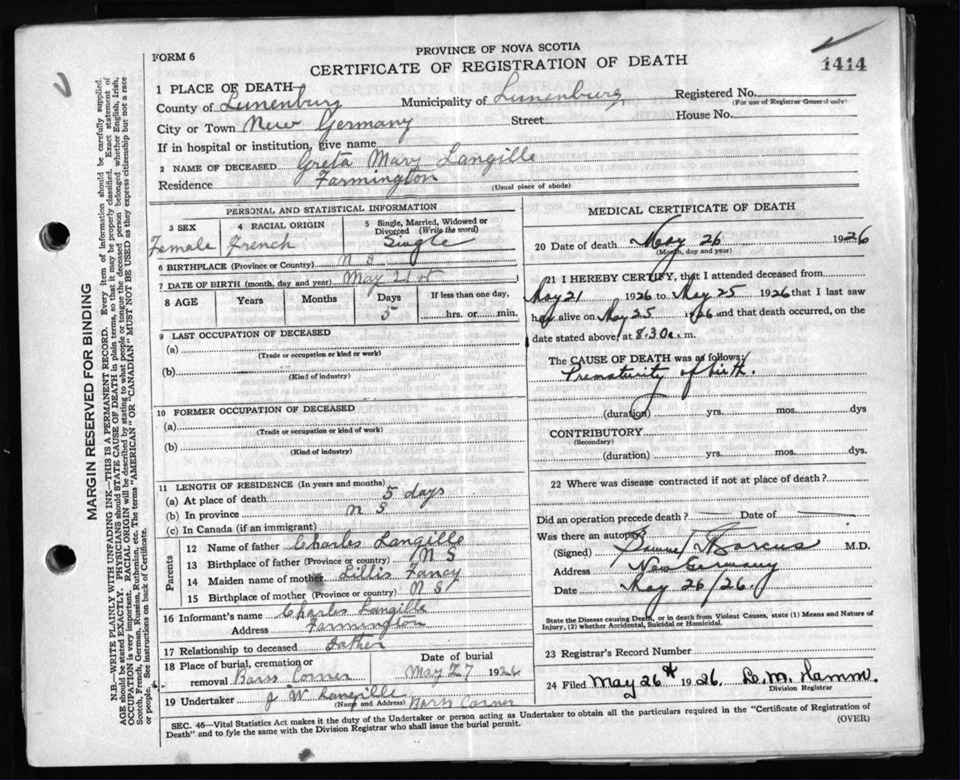 PROVINCE OF NOVA SCOTIA
FORM 6
CERTIFICATE OF REGISTRATION OF DEATH
1414
1 PLACE OF DEATH
County of Lunenburg Municipality of Lunenburg Registered No.
(For use of Registrar General only)
City or Town New Germany Street House No.
If in hospital or institution, give name
2 NAME OF DECEASED Greta Mary Langille
Residence Farmington
(Usual place of abode)
PERSONAL AND STATISTICAL INFORMATION
3 SEX 4 RACIAL ORIGIN 5 Single, Married, Widowed or Divorced (Write the word)
Female French Single
6 BIRTHPLACE (Province or Country) N S
7 DATE OF BIRTH (month, day and year) May 21st
8 AGE Years Months Days If less than one day,
5 hrs. or min.
9 LAST OCCUPATION OF DECEASED
(a)
(Trade or occupation or kind or work)
(b)
(Kind of industry)
10 FORMER OCCUPATION OF DECEASED
(a)
(Trade or occupation or kind of work)
(b)
(Kind of industry)
11 LENGTH OF RESIDENCE (In years and months)
(a) At place of death 5 days
(b) In province N S
(c) In Canada (if an immigrant)
Parents
12 Name of father Charles Langille
13 Birthplace of father (Province or country) N S
14 Maiden name of mother Lillis Fancy
15 Birthplace of mother (Province or country) N S
16 Informant's name Charles Langille
Address Farmington
17 Relationship to deceased Father
18 Place of burial, cremation or removal Barss Corner
Date of burial
May 27 1926
19 Undertaker J W Langille Barss Corner
(Name and Address)
MEDICAL CERTIFICATE OF DEATH
20 Date of death May 26 1926
(Month, day and year)
21 I HEREBY CERTIFY, that I attended deceased from
May 21 1926 to May 25 1926 that I last saw
h alive on May 25 1926 and that death occurred, on
date stated above, at 8.30 a. m.
The CAUSE OF DEATH was as follows:
Prematurity of birth.
(duration) yrs. mos. dys
CONTRIBUTORY
(Secondary)
(duration) yrs. mos. dys.
22 Where was disease contracted if not at place of death?
Did an operation precede death? Date of
Was there an autopsy
(Signed) M.D.
Address New Germany
Date May 26/26.
State the Disease causing Death, or in death from Violent Causes, state (1) Means and Nature of
Injury, (2) whether Accidental, Suicidal or Homicidal.
23 Registrar's Record Number
24 Filed May 26th 1926. D. M. Hamm.
Division Registrar
SEC. 46—Vital Statistics Act makes it the duty of the Undertaker or person acting as Undertaker to obtain all the particulars required in the "Certificate of Registration of
Death" and to fyle the same with the Division Registrar who shall issue the burial permit.
(OVER)
MARGIN RESERVED FOR BINDING
N.B.—WRITE PLAINLY WITH UNFADING INK—THIS IS A PERMANENT RECORD. Every item of information should be carefully supplied.
AGE should be stated EXACTLY. PHYSICIANS should STATE CAUSE OF DEATH in plain terms, so that it may be properly classified. Exact statement of
OCCUPATION is very important. RACIAL ORIGIN will be described by stating to what people or tongue the deceased person belonged whether English, Irish,
Scotch, French, German, Russian, Ruthenian, etc. The terms "AMERICAN" OR "CANADIAN" MUST NOT BE USED as they express citizenship but not a race
or people. See instructions on back of Certificate.